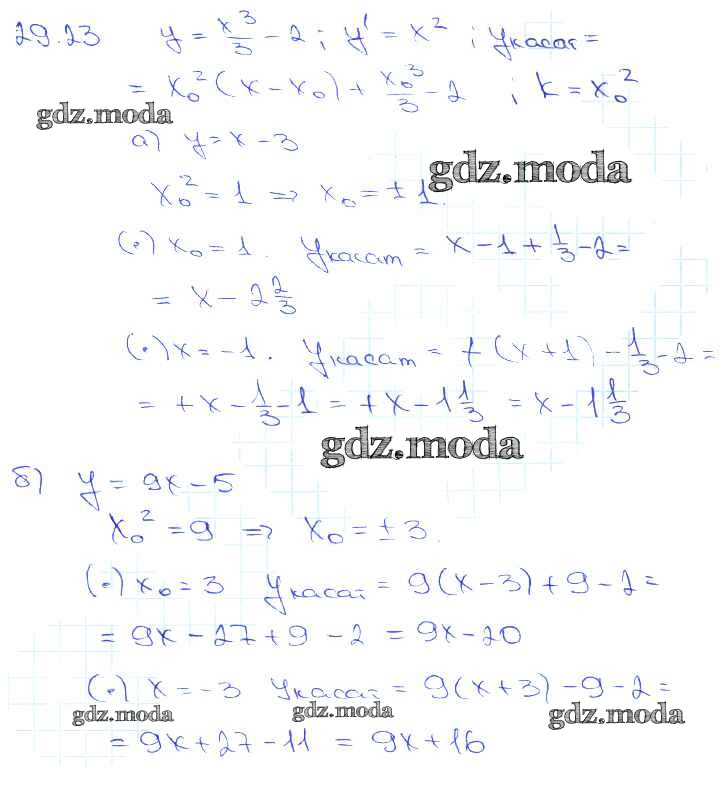 29.23 y = x³/3 - 2 ; y' = x² ; yкасат =
= x₀²(x - x₀) + x₀³/3 - 2 ; k = x₀²
gdz.moda
а) y = x - 3
gdz.moda
x₀² = 1 ⇒ x₀ = ±1.
(·) x₀ = 1. yкасат = x - 1 + 1/3 - 2 =
= x - 2 2/3
(·) x = -1. yкасат = +(x + 1) - 1/3 - 2 =
= +x - 1/3 - 1 = +x - 1 1/3 = x - 1 1/3
gdz.moda
б) y = 9x - 5
x₀² = 9 ⇒ x₀ = ±3.
(·) x₀ = 3 yкасат = 9(x - 3) + 9 - 2 =
= 9x - 27 + 9 - 2 = 9x - 20
(·) x = -3 yкасат = 9(x + 3) - 9 - 2 =
gdz.moda gdz.moda gdz.moda
= 9x + 27 - 11 = 9x + 16